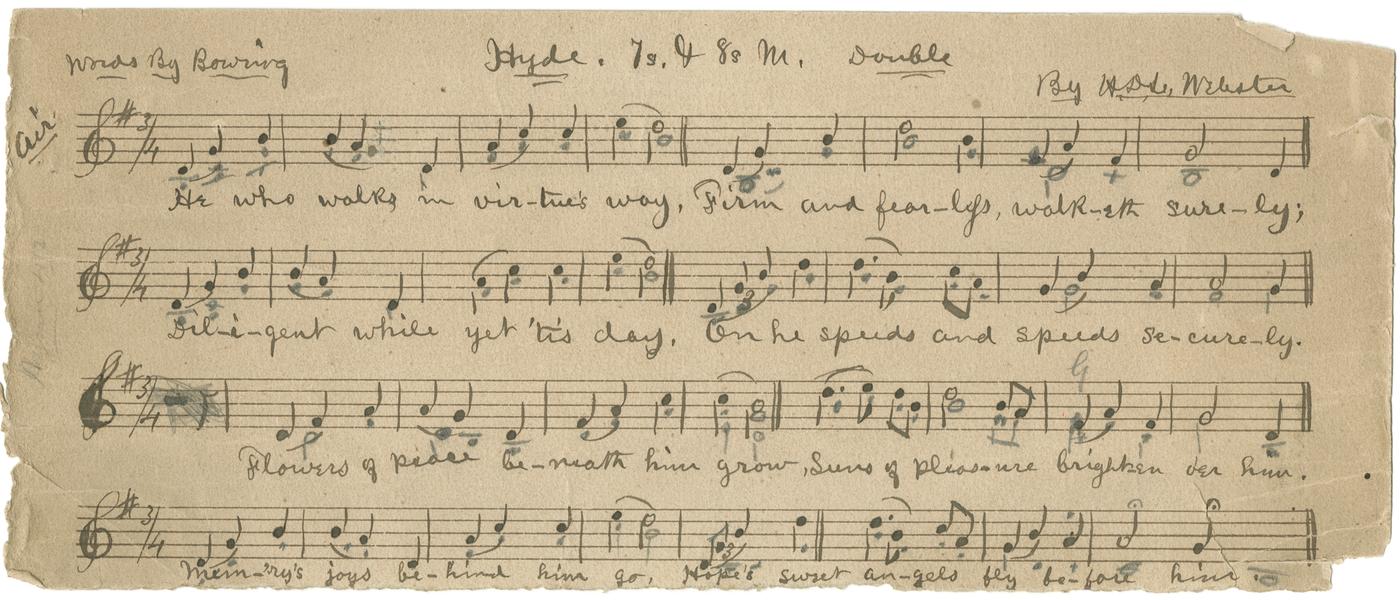 Words By Bowring
Hyde. 7s. & 8s M. Double
By H.D.L. Webster
Air
3/4
He who walks in vir-tue's way, Firm and fear-less, walk-eth sure-ly;
3/4
Dil-i-gent while yet 'tis day, On he speeds and speeds se-cure-ly.
3
3/4
G
Flowers of peace be-neath him grow, Suns of pleas-ure brighten o'er him.
3/4
Mem-'ry's joys be-hind him go, Hope's sweet an-gels fly be-fore him.
3